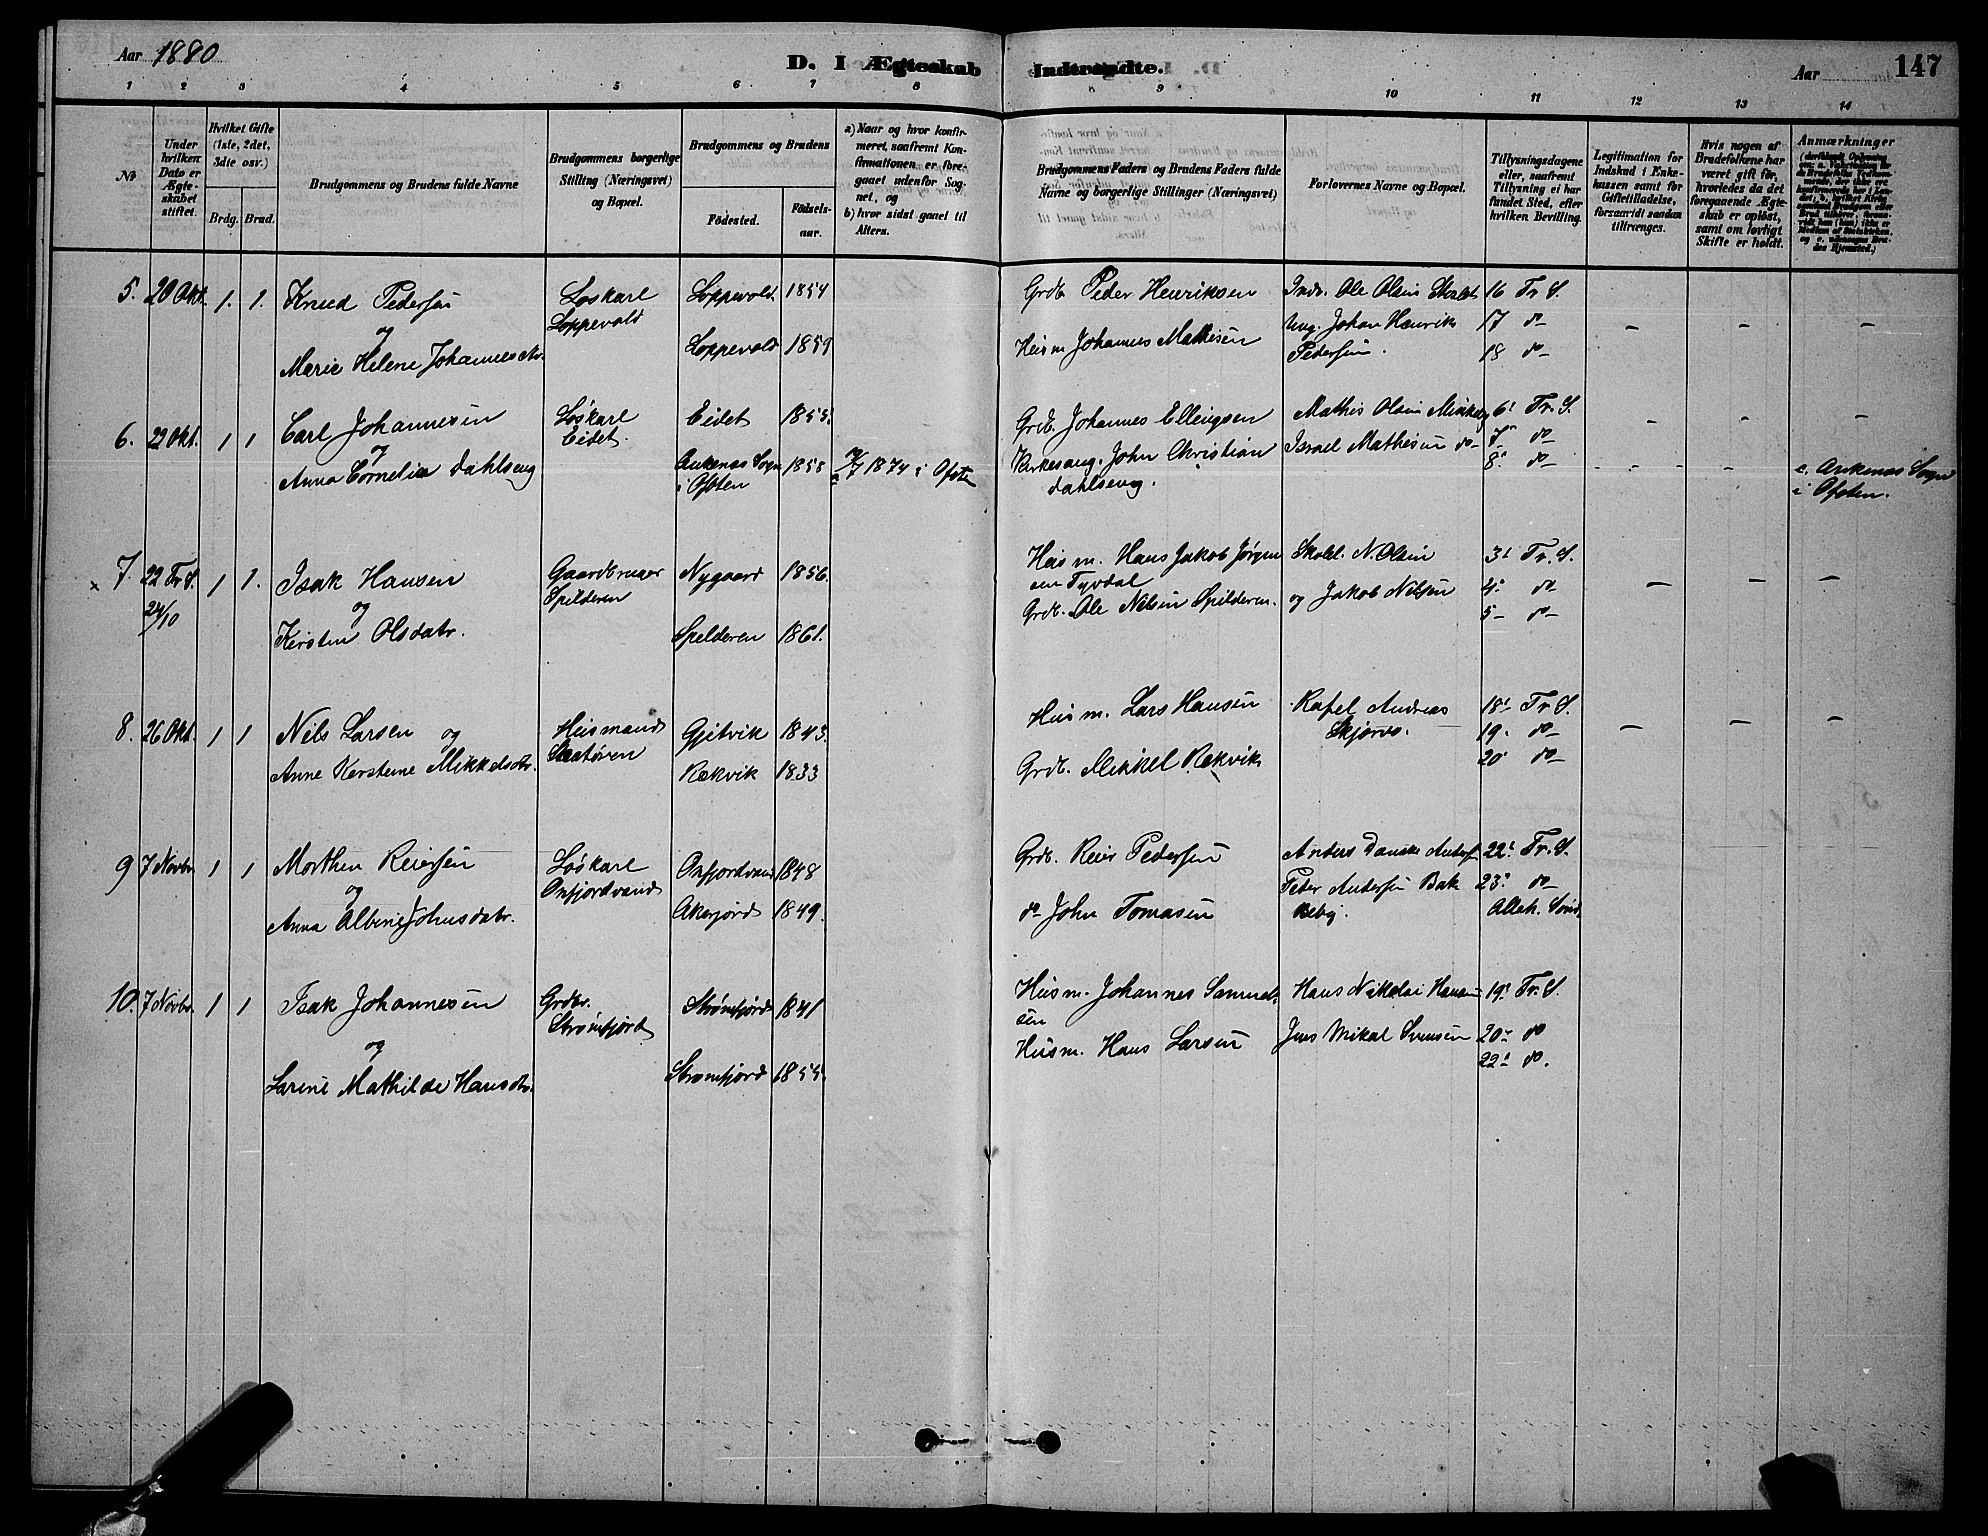 Aar 1880
D. I Ægteskab Indtraadte.
Aar
147
1 2 3 4 5 6 7 8 9 10 11 12 13 14
No
Under hvilken Dato er Ægteskabet stiftet.
Hvilket Gifte (1ste, 2det, 3die osv.)
Brdg. Brud.
Brudgommens og Brudens fulde Navne
Brudgommens borgerlige Stilling (Næringsvei) og Bopæl.
Brudgommens og Brudens
Fødested. Fødsels-aar.
a) Naar og hvor konfirmeret, saafremt Konfirmationen er foregaaet udenfor Sognet, og
b) hvor sidst gaaet til Alters.
Brudgommens Faders og Brudens Faders fulde Navne og borgerlige Stillinger (Næringsvei)
Forlovernes Navne og Bopæl.
Tillysningsdagene eller, saafremt Tillysning ei har fundet Sted, efter hvilken Bevilling.
Legitimation for Indskud i Enkekassen samt for Giftetilladelse, forsaavidt saadan tiltrænges.
Hvis nogen af Brudefolkene har været gift før, hvorledes da det foregaaende Ægteskab er opløst, samt om lovligt Skifte er holdt.
Anmærkninger
5. 20 Okt. 1. 1. Knud Pedersen Løskarl Loppevold. 1854 Grdb. Peder Henriksen Indr. Ole Olsen 16 Tr. S.
og Loppevold Ung. Johan Henrik 17 do – – –
Marie Helene Johannesdtr. Loppevold 1859 Husm Johannes Mathisen Pedersen. 18 do
6. 22 Okt. 1 1 Carl Johannesen Løskarl Eidet 1855. Grdb. Johannes Ellingsen Mathis Olsen 6' Tr. S. – – –
og Eidet. Ankenæs Sogn 1858 1874 i Ofoten Kirkesang. John Christian Israel Mathisen do 7" do
Anna Cornelia Dahlseng i Ofoten Dahlseng. 8' do – – – c. Ankenæs Sogn
i Ofoten.
7. 22 Tr. S. 1 1. Isak Hansen Gaardbruger Nygaard 1856. Husm. Hans Jakob Jørgen Skold. N. Olsen 3' Tr. S.
x 24/10 og Spilderen sen Tyvdal og Jakob Nilsen 4' do – – –
Kirsten Olsdatr. Spelderen 1861. Grdb. Ole Nilsen Spilderen. 5 – do
8. 26 Okt. 1 1 Nils Larsen og Husmand Gjetvik 1843. Husm. Lars Hansen Rafel Andreas 18' Tr. S.
Anne Kerstene Mikkelsdtr. Sætøren Rækvik 1833 Grdb. Mikkel Rækvik Skjørvo. 19. do – – –
20' do
9 7 Novbr 1 1 Morthen Reiersen Løskarl Onfjordvand 1848 Grdb. Reier Pedersen Anders Danske Anders 22' Tr. S.
og Onfjordvand Peter Andersen Bak 23' do
Anna Albene Johnsdatr. Akerjord 1849. do John Tomasen Alleh. Sønd
10. 7 Novbr. 1 1 Isak Johannesen Grdbr. Strømfjord 1841 Husm. Johannes Samuel Hans Nikolai Hansen 19' Tr. S.
og Strømfjord sen Jens Mikal Svensen 20 – do
Larine Mathilde Hansdtr. Strømfjord 1855. Husm. Hans Larsen 22' do.